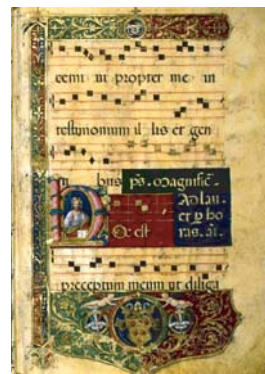 cemi ni propter me in
testimonium il lis et gen
ti bus ps. Magnific̄.
Ad lau
et p ho
H Oc est ras. añ.
preceptum meum ut diliga